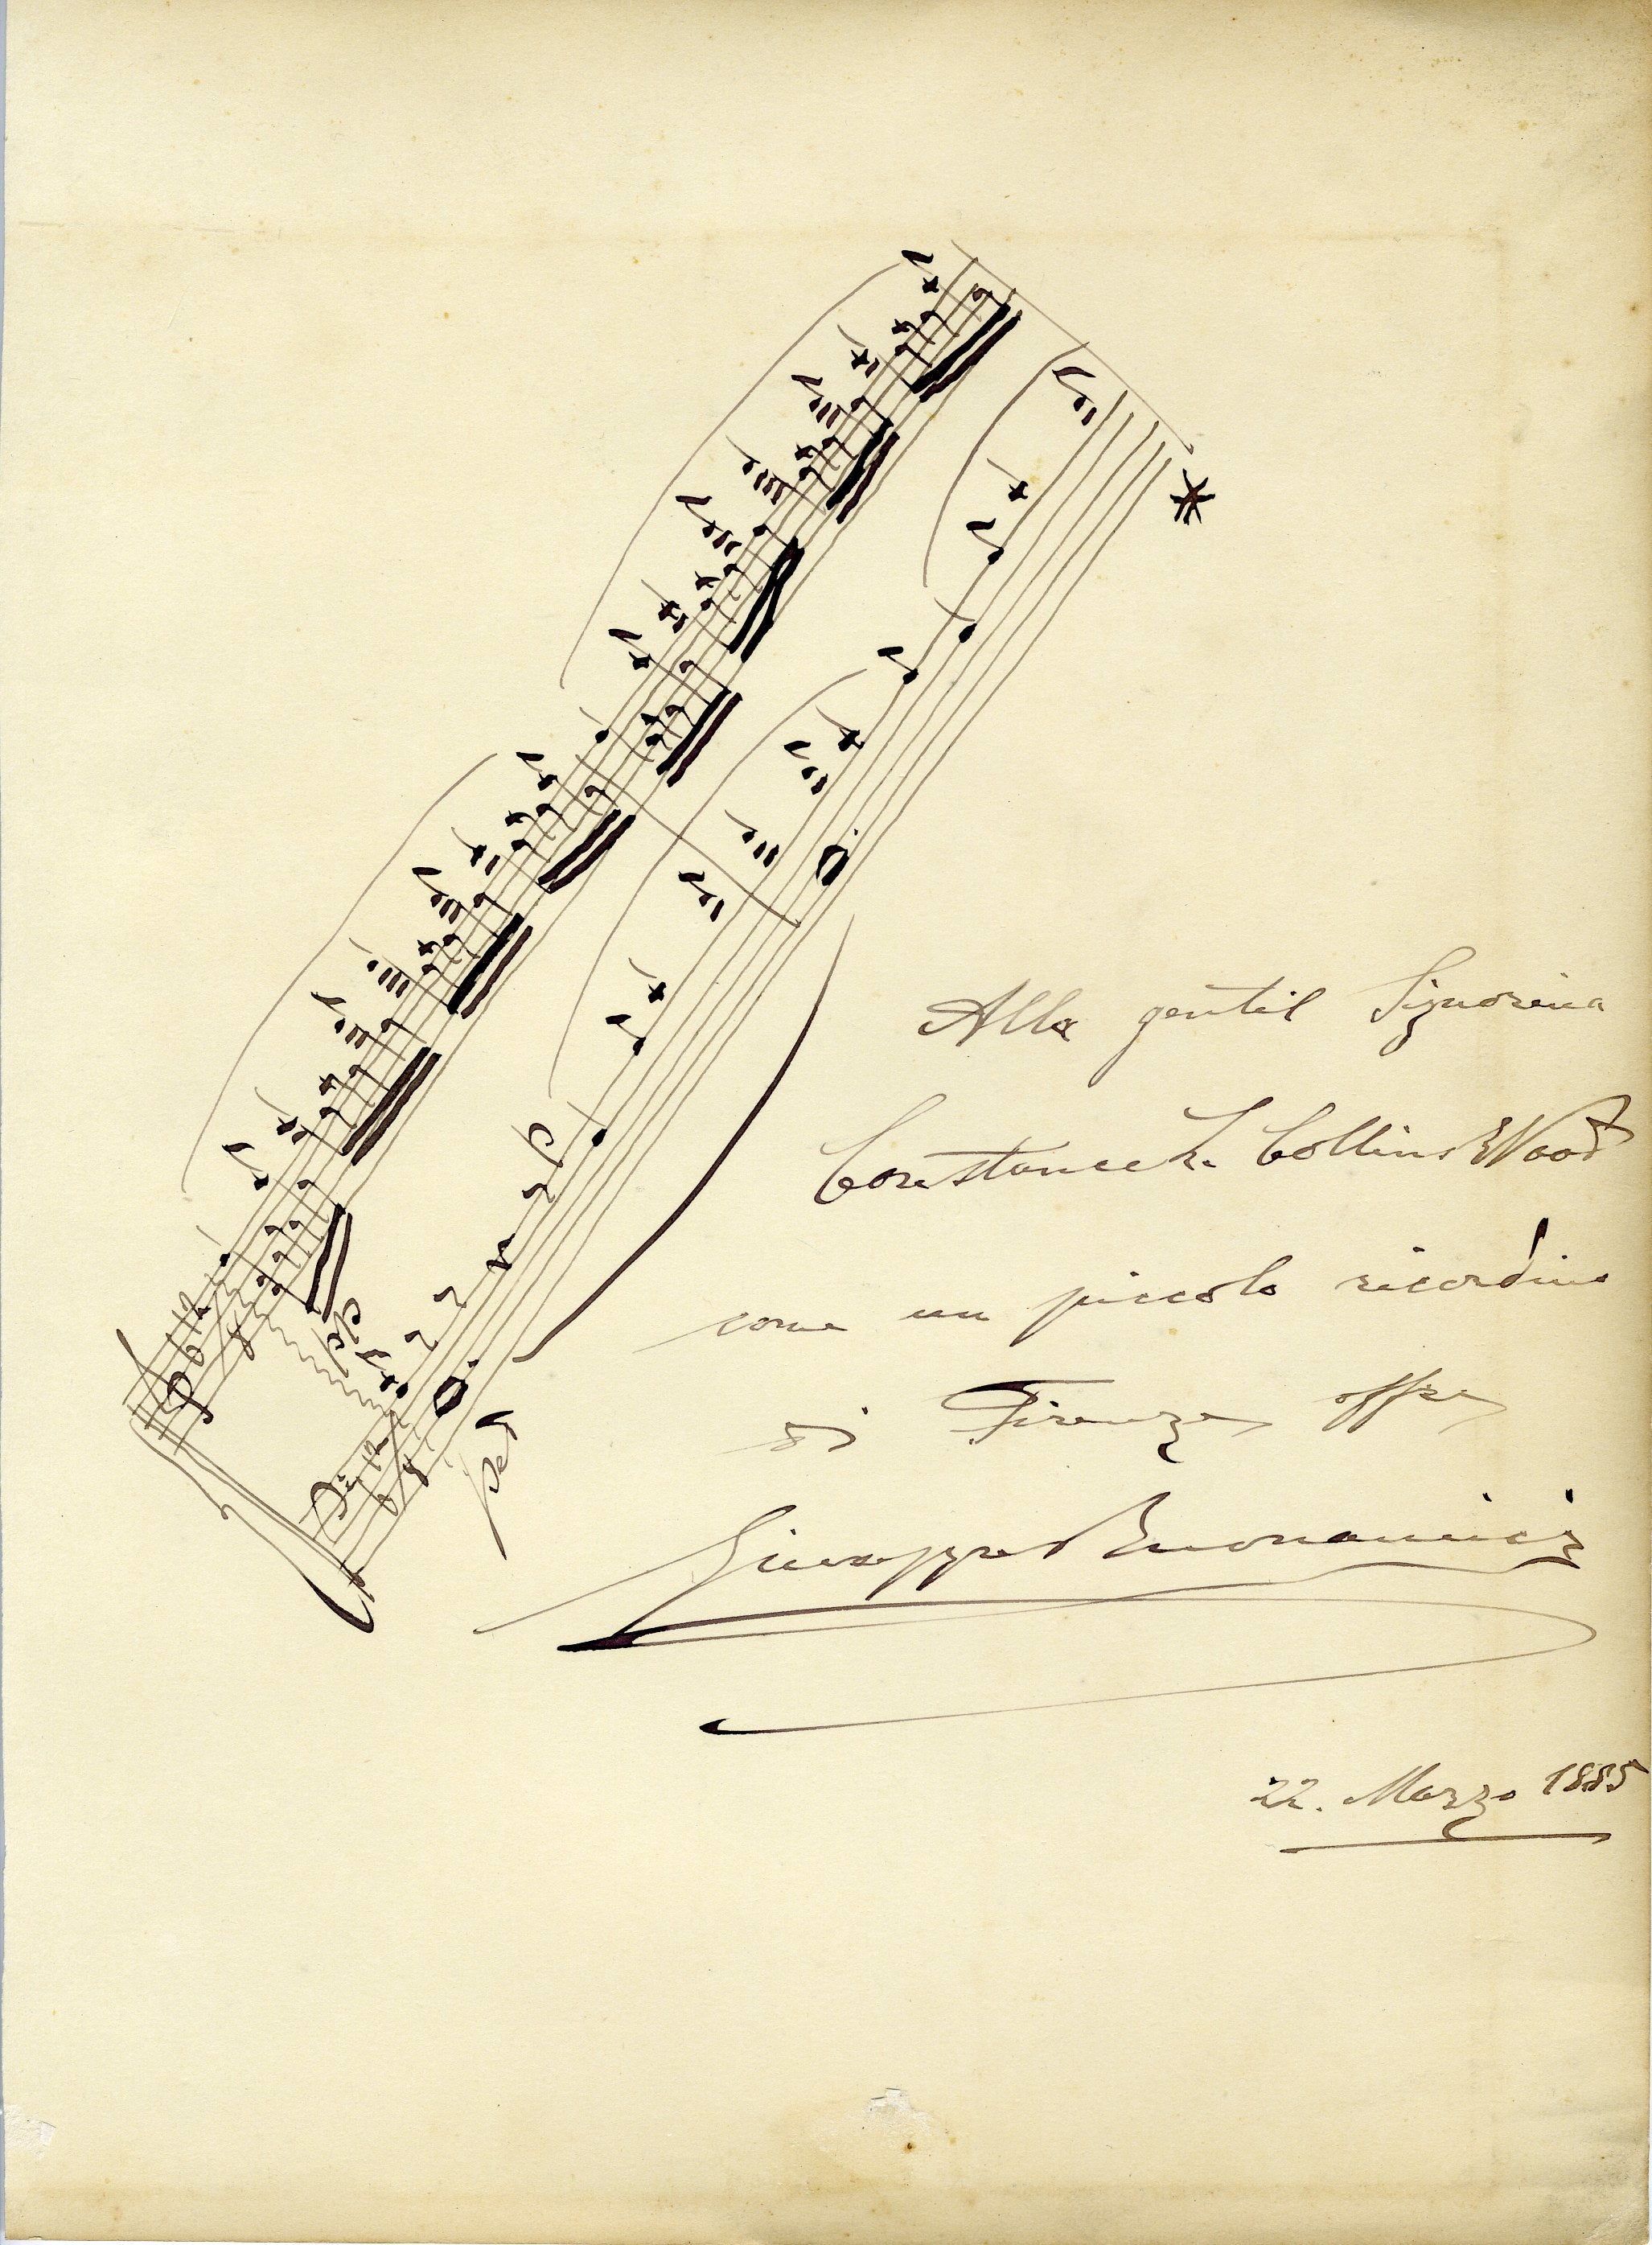 dolce
Ped
Alla gentil Signorina
Constance L. Collins Wood
come un piccolo ricordino
di Firenze offre
Giuseppe Buonamici
22. Marzo 1885